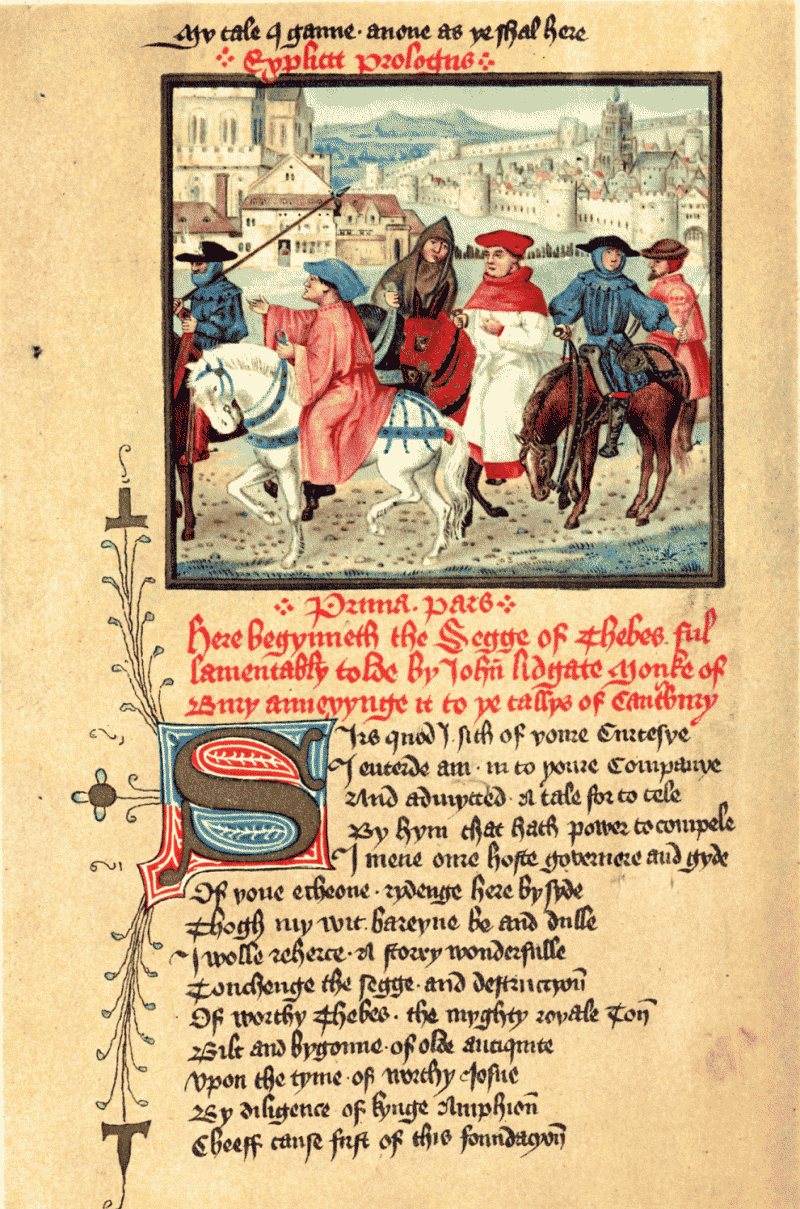 My tale I ganne · anone as ye shal here
Explicit prologus
Prima · pars
Here begynneth the Segge of Thebes ful
lamentably tolde by John lidgate Monke of
Bury annexynge it to ye tallys of Cantbury
Sirs quod I · sith of youre Curtesye
I enterde am · in to youre Companye
And admytted · A tale for to tele
By hym that hath power to compele
I mene oure hoste governere and gyde
Of youe echeone · rydenge here by syde
Thogh my wit · bareyne be and dulle
I wolle reherce · A story wonderfulle
Touchenge the segge · and destruccyon
Of worthy Thebes · the myghty royale Ton
Bilt and bygonne · of olde antiquite
Vpon the tyme · of worthy Josue
By diligence of kynge Amphion
Cheeff cause first of this foundacyon